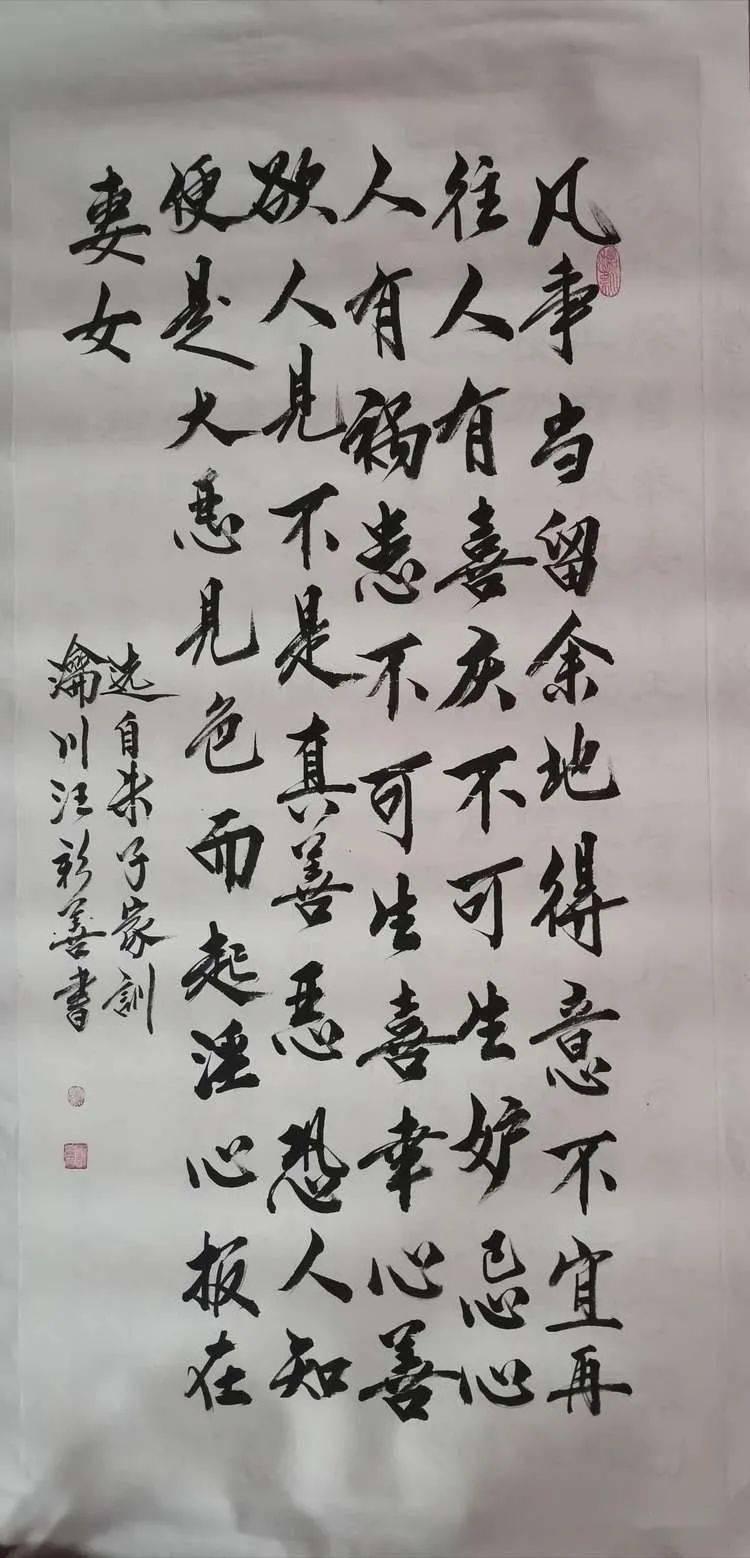 凡事当留余地得意不宜再
往人有喜庆不可生妒忌心
人有祸患不可生喜幸心善
欲人见不是真善恶恐人知
便是大恶见色而起淫心报在
妻女
选自朱子家训
川汪善书